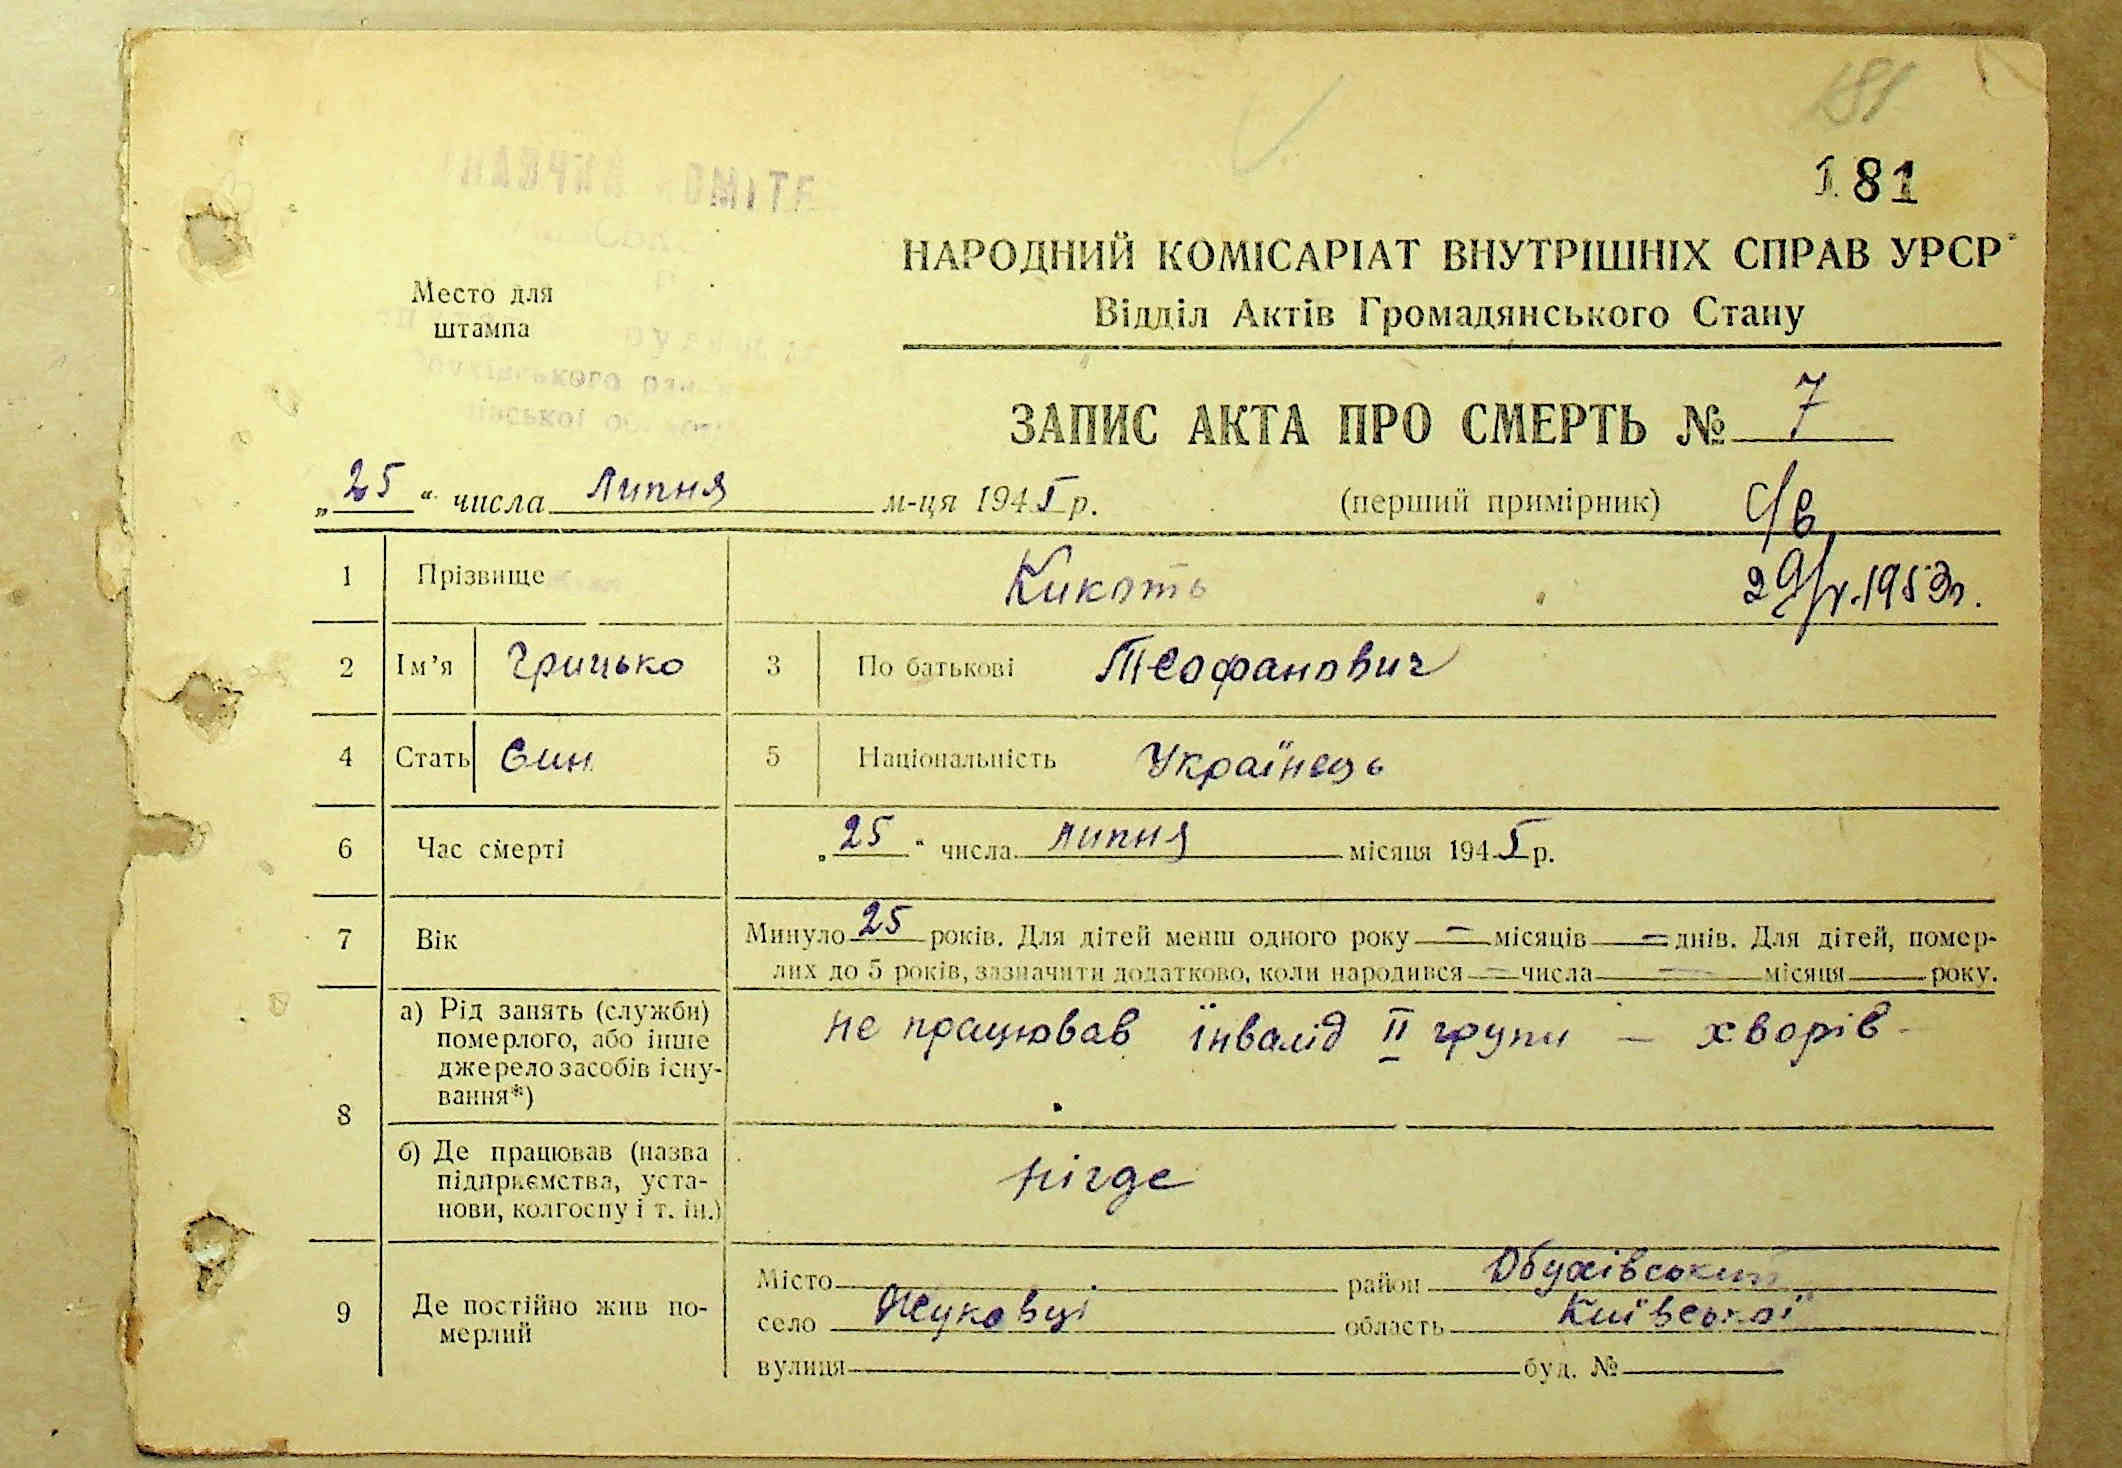 181
181
НАРОДНИЙ КОМІСАРІАТ ВНУТРІШНІХ СПРАВ УРСР
Место для
штампа
Відділ Актів Громадянського Стану
ЗАПИС АКТА ПРО СМЕРТЬ № 7
„25“ числа Липня м-ця 1945 р. (перший примірник) с/в
1 Прізвище Кикоть
2 Ім’я Грицько 3 По батькові Теофанович
4 Стать Син 5 Національність Українець
6 Час смерті „25“ числа липня місяця 1945 р.
7 Вік Минуло 25 років. Для дітей менш одного року — місяців — днів. Для дітей, помер-
лих до 5 років, зазначити додатково, коли народився — числа — місяця року.
8 а) Рід занять (служби)
померлого, або інше
джерело засобів існу-
вання*)
не працював інвалід II групи – хворів
б) Де працював (назва
підприємства, уста-
нови, колгоспу і т. ін.)
нігде
9 Де постійно жив по-
мерлий
Місто район Обухівський
село Жуковці область Київської
вулиця буд. №